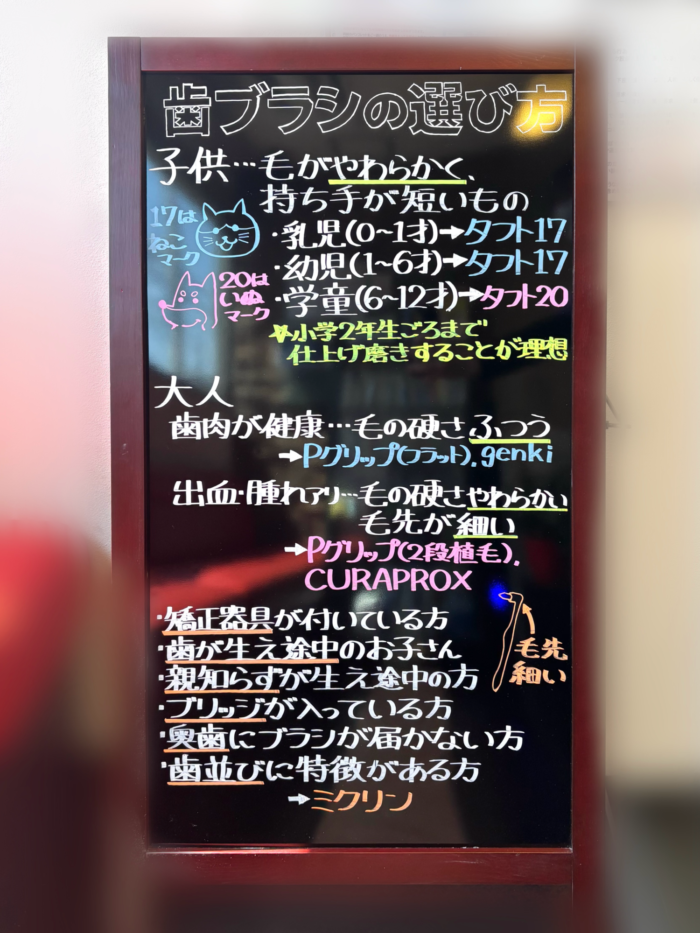 歯ブラシの選び方
子供…毛がやわらかく、
持ち手が短いもの
17は
ねこ
マーク
・乳児(0~1才)→タフト17
・幼児(1~6才)→タフト17
20は
いぬ
マーク
・学童(6~12才)→タフト20
☆小学2年生ごろまで
仕上げ磨きすることが理想
大人
歯肉が健康…毛の硬さふつう
→Pグリップ(フラット).genki
出血・腫れアリ…毛の硬さやわらかい
毛先が細い
→Pグリップ(2段植毛).
CURAPROX
・矯正器具が付いている方
・歯が生え途中のお子さん
・親知らずが生え途中の方
・ブリッジが入っている方
・奥歯にブラシが届かない方
・歯並びに特徴がある方
→ミクリン
毛先
細い